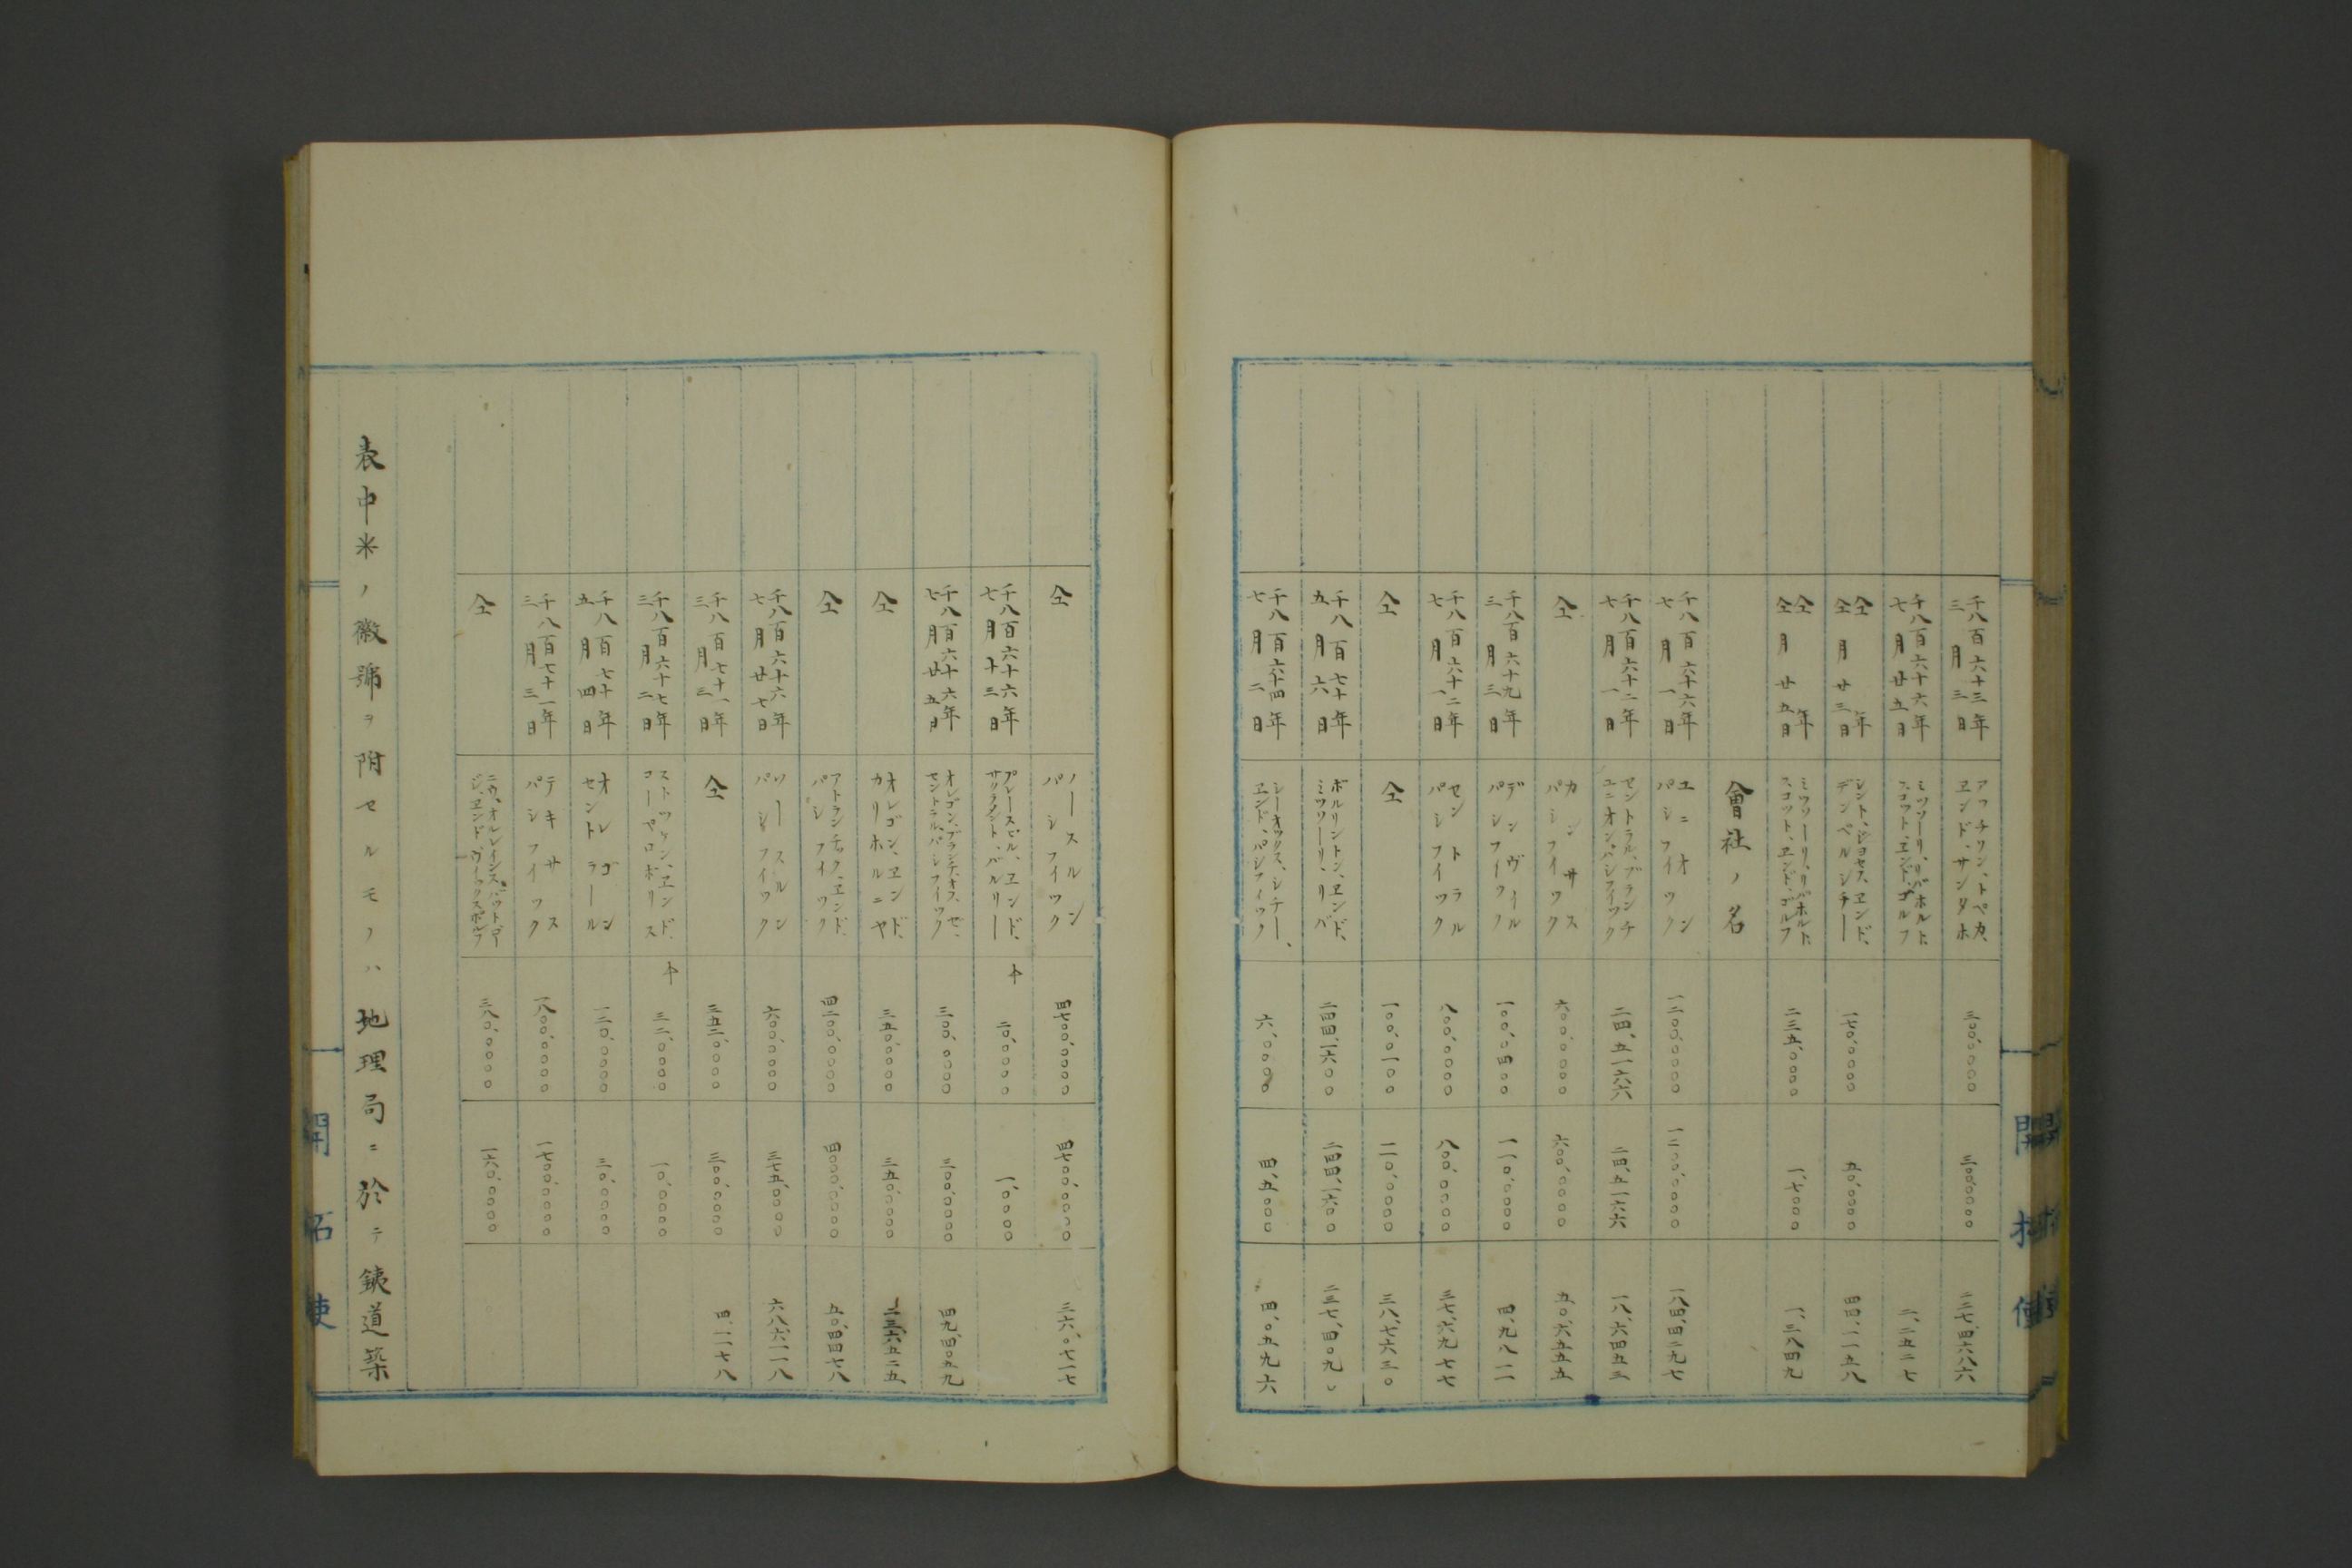 千八百六十三年
三月三日
アツチソン、トペカ、
エンド、サンタホ
三〇〇、〇〇〇〇
三〇〇、〇〇〇〇
二二七、四六八六
千八百六十六年
七月廿五日
ミツソーリ、リバホルト、
スコツト、エンド、ゴルフ
二、二五二七
仝年
仝月廿三日
シント、ジヨセフ、エンド、
デンベルシチー
一七〇、〇〇〇〇
五〇、〇〇〇〇
四四、一一五八
仝年
仝月廿五日
ミツソーリ、リバホルト、
スコツト、エンド、ゴルフ
二三五、〇〇〇〇
一、七〇〇〇
一、三八四九
會社ノ名
千八百六十六年
七月一日
ユニオン
パシフイツク
一二〇〇、〇〇〇〇
一二〇〇、〇〇〇〇
一八四、四二九七
千八百六十二年
七月一日
セントラル、ブランチ
ユニオン、パシフイツク
二四、五一六六
二四、五一六六
一八、六四五三
仝
カンサス
パシフイツク
六〇〇、〇〇〇〇
六〇〇、〇〇〇〇
五〇、六五五五
千八百六十九年
三月三日
デンヴール
パシフイツク
一〇〇、〇四〇〇
一一〇、〇〇〇〇
四、九八一一
千八百六十二年
七月一日
セントラル
パシフイツク
八〇〇、〇〇〇〇
八〇〇、〇〇〇〇
三七、六九七七
仝
仝
一〇〇、〇一〇〇
一一〇、〇〇〇〇
三八、七六三〇
千八百七十年
五月六日
ボルリントン、エンド、
ミツソーリ、リバ
二四四、一六〇〇
二四四、一六〇〇
二三七、四〇九〇
千八百六十四年
七月二日
シーオツクス、シチー、
エンド、パシフイツク
六、〇〇〇〇
四、五〇〇〇
四、〇五九六
仝
ノースルン
パシフイツク
四七〇〇、〇〇〇〇
四七〇〇、〇〇〇〇
三六、〇七一七
千八百六十六年
七月十三日
プレースビル、エンド、
サクラメント、バルリー
二〇、〇〇〇〇
一、〇〇〇〇
千八百六十六年
七月廿五日
オレゴン、ブランチ、オフ、ゼ、
セントラル、パシフイツク
三〇〇、〇〇〇〇
三〇〇、〇〇〇〇
四九、四〇五九
仝
オレゴン、エンド、
カリホルニヤ
三五〇、〇〇〇〇
三五〇、〇〇〇〇
仝
アトランチツク、エンド、
パシフイツク
四二〇〇、〇〇〇〇
四〇〇〇、〇〇〇〇
五〇、四四七八
千八百六十六年
七月廿七日
ソースルン
パシフイツク
六〇〇、〇〇〇〇
三七五、〇〇〇〇
六八、六一一八
千八百七十一年
三月三日
仝
三五二、〇〇〇〇
三〇〇、〇〇〇〇
四、一一七八
千八百六十七年
三月二日
ストツクン、エンド、
コーペロポリス
三二、〇〇〇〇
一〇、〇〇〇〇
千八百七十年
五月四日
オレゴン
セントラール
一二〇、〇〇〇〇
三〇、〇〇〇〇
千八百七十一年
三月三日
テキサス
パシフイツク
一八〇〇、〇〇〇〇
一七〇〇、〇〇〇〇
仝
三八〇、〇〇〇〇
一六〇、〇〇〇〇
表中米ノ徽號ヲ附セルモノハ地理局ニ於テ鉄道築
開拓使